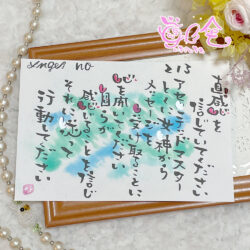 Angel no
213
直感を
信じていてください
アセンデッドマスター
として女神から
メッセージを
受け取ることに
心を開いてください
自らが
感じていることを信じ
それに従って
行動してください